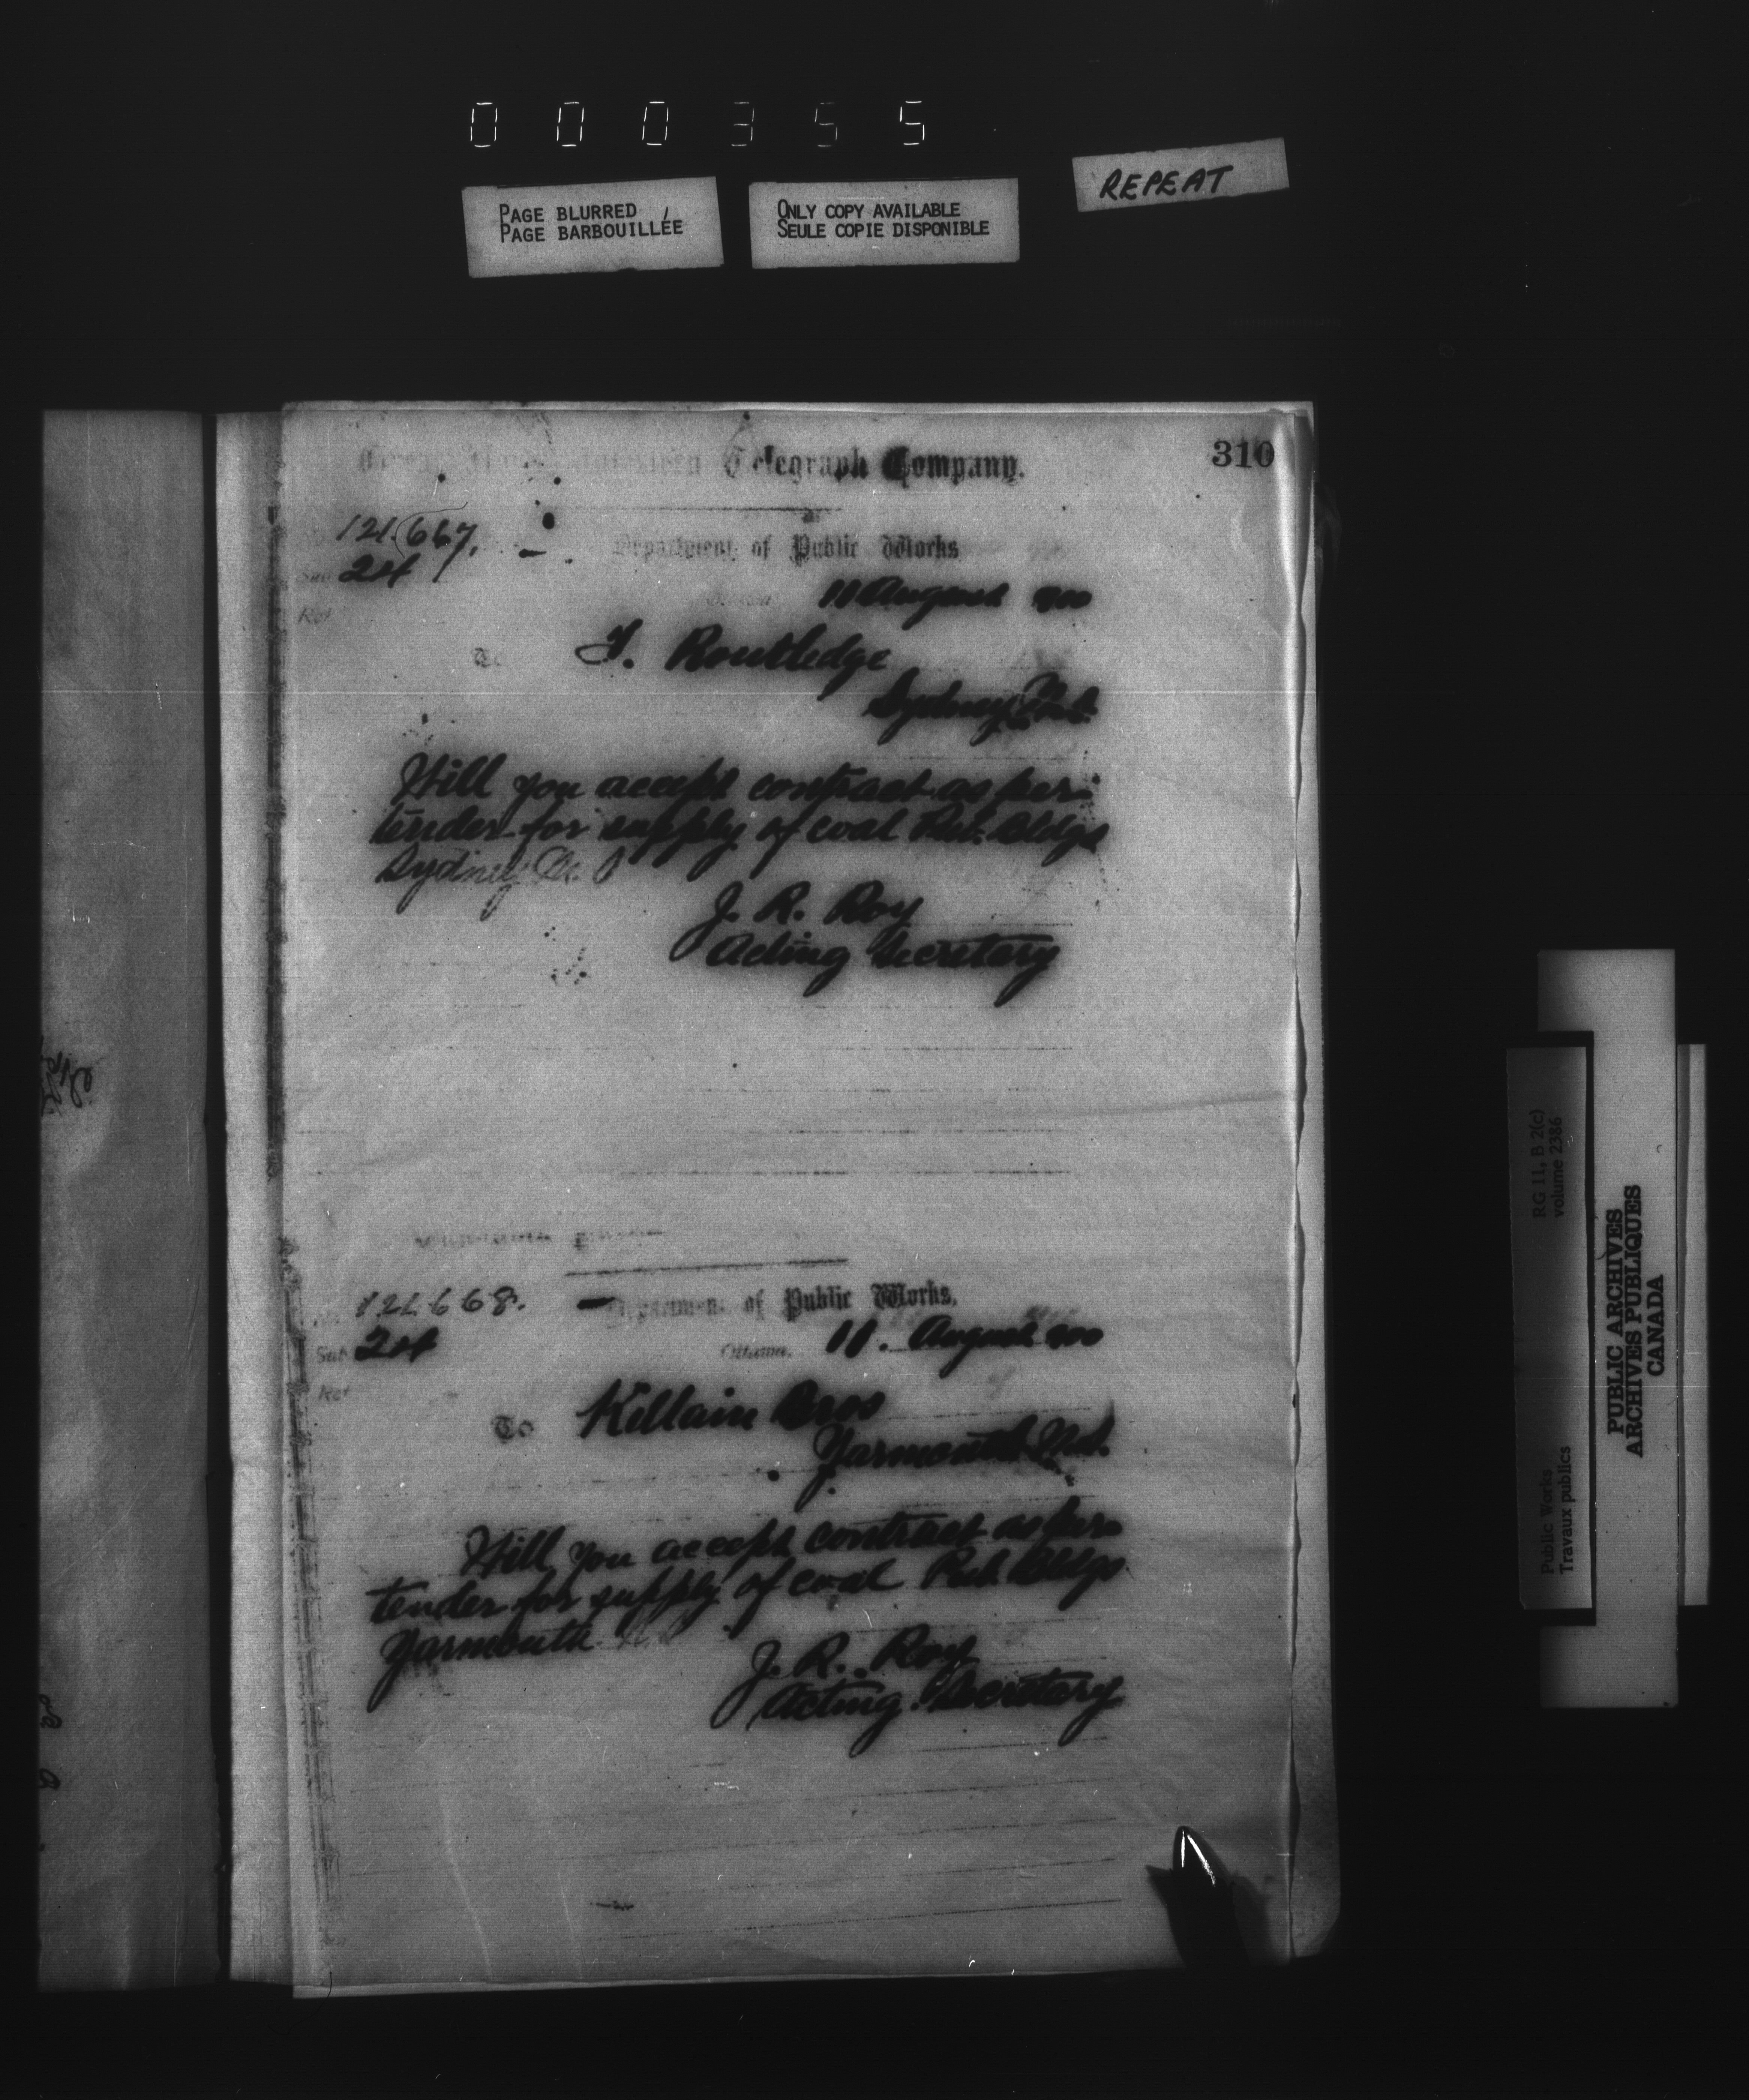 000355
PAGE BLURRED
PAGE BARBOUILLÉE
ONLY COPY AVAILABLE
SEULE COPIE DISPONIBLE
REPEAT
310
Telegraph Company.
121.667.
Department of Public Works
Sub 24
Ref
Ottawa 11 August 900
To J. Routledge
Sydney N.S.
Will you accept contract as per
tender for supply of coal Pub. Bldgs
Sydney
J. R. Roy
Acting Secretary
121668.
Department of Public Works,
Sub 24
Ottawa, 11. August 900
Ref
To Killain Bros
Yarmouth N.S.
Will you accept contract as per
tender for supply of coal Pub. Bldgs
Yarmouth
J. R. Roy
Acting Secretary
RG 11, B 2(c)
volume 2386
Public Works
Travaux publics
PUBLIC ARCHIVES
ARCHIVES PUBLIQUES
CANADA